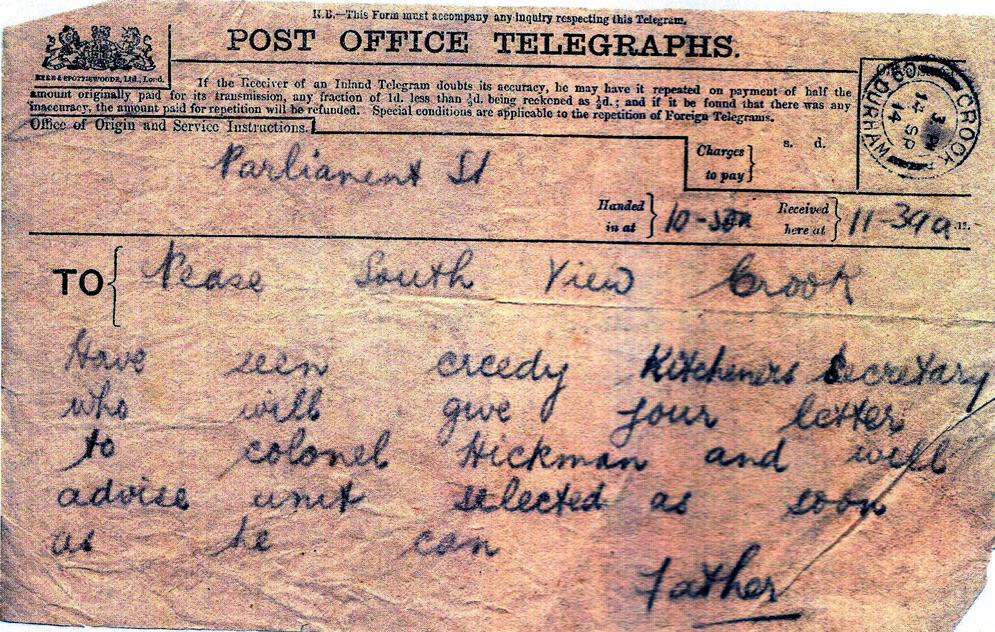 N.B.—This Form must accompany any inquiry respecting this Telegram.
POST OFFICE TELEGRAPHS.
If the Receiver of an Inland Telegram doubts its accuracy, he may have it repeated on payment of half the
amount originally paid for its transmission, any fraction of 1d. less than ½d. being reckoned as ½d.; and if it be found that there was any
inaccuracy, the amount paid for repetition will be refunded. Special conditions are applicable to the repetition of Foreign Telegrams.
Office of Origin and Service Instructions.
Parliament St
Charges to pay
s. d.
CROOK
CO. DURHAM
14 SP
14
Handed in at
Received here at 11-39a
TO Pease South View Crook
Have seen creedy Kitcheners Secretary
who will give your letter
to colonel Hickman and will
advise unit selected as soon
as he can
Father